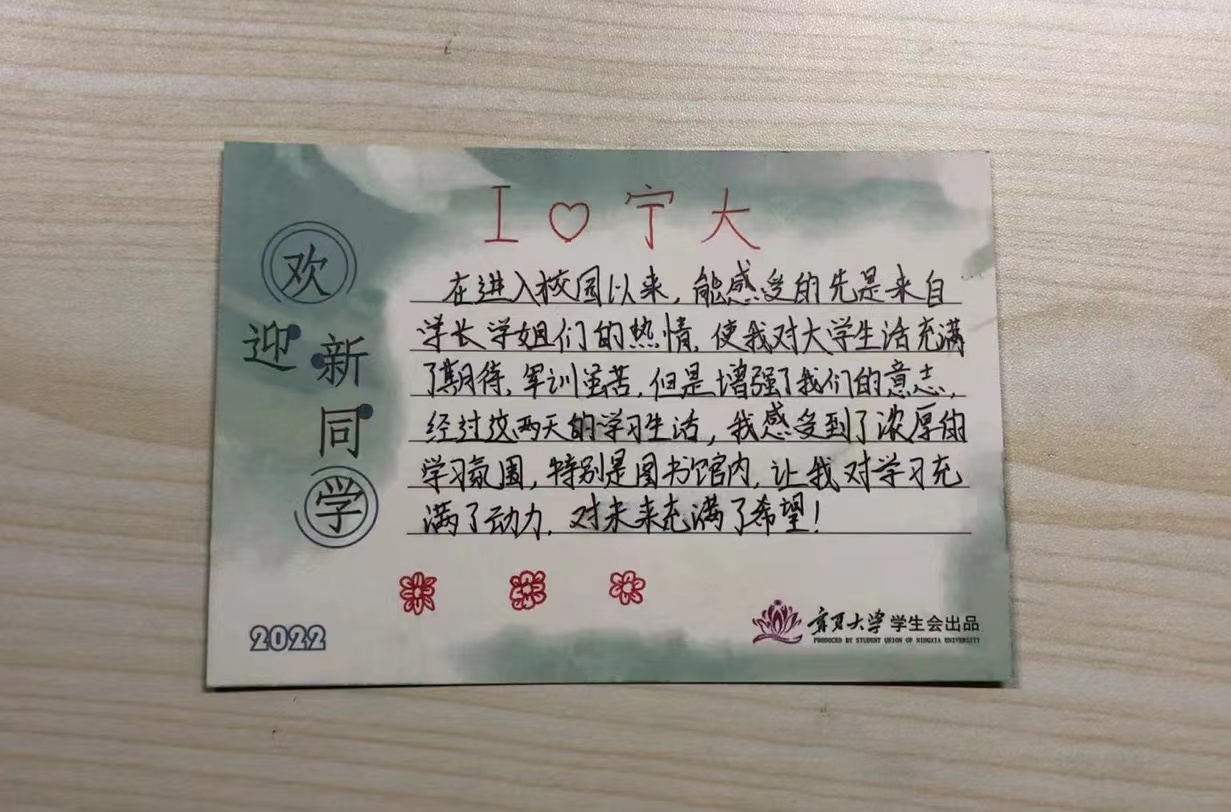 I ♡ 宁大
欢迎新同学
在进入校园以来，能感受的先是来自
学长学姐们的热情，使我对大学生活充满
了期待，军训虽苦，但是增强了我们的意志，
经过这两天的学习生活，我感受到了浓厚的
学习氛围，特别是图书馆内，让我对学习充
满了动力，对未来充满了希望！
2022
宁夏大学 学生会出品
PRODUCED BY STUDENT UNION OF NINGXIA UNIVERSITY